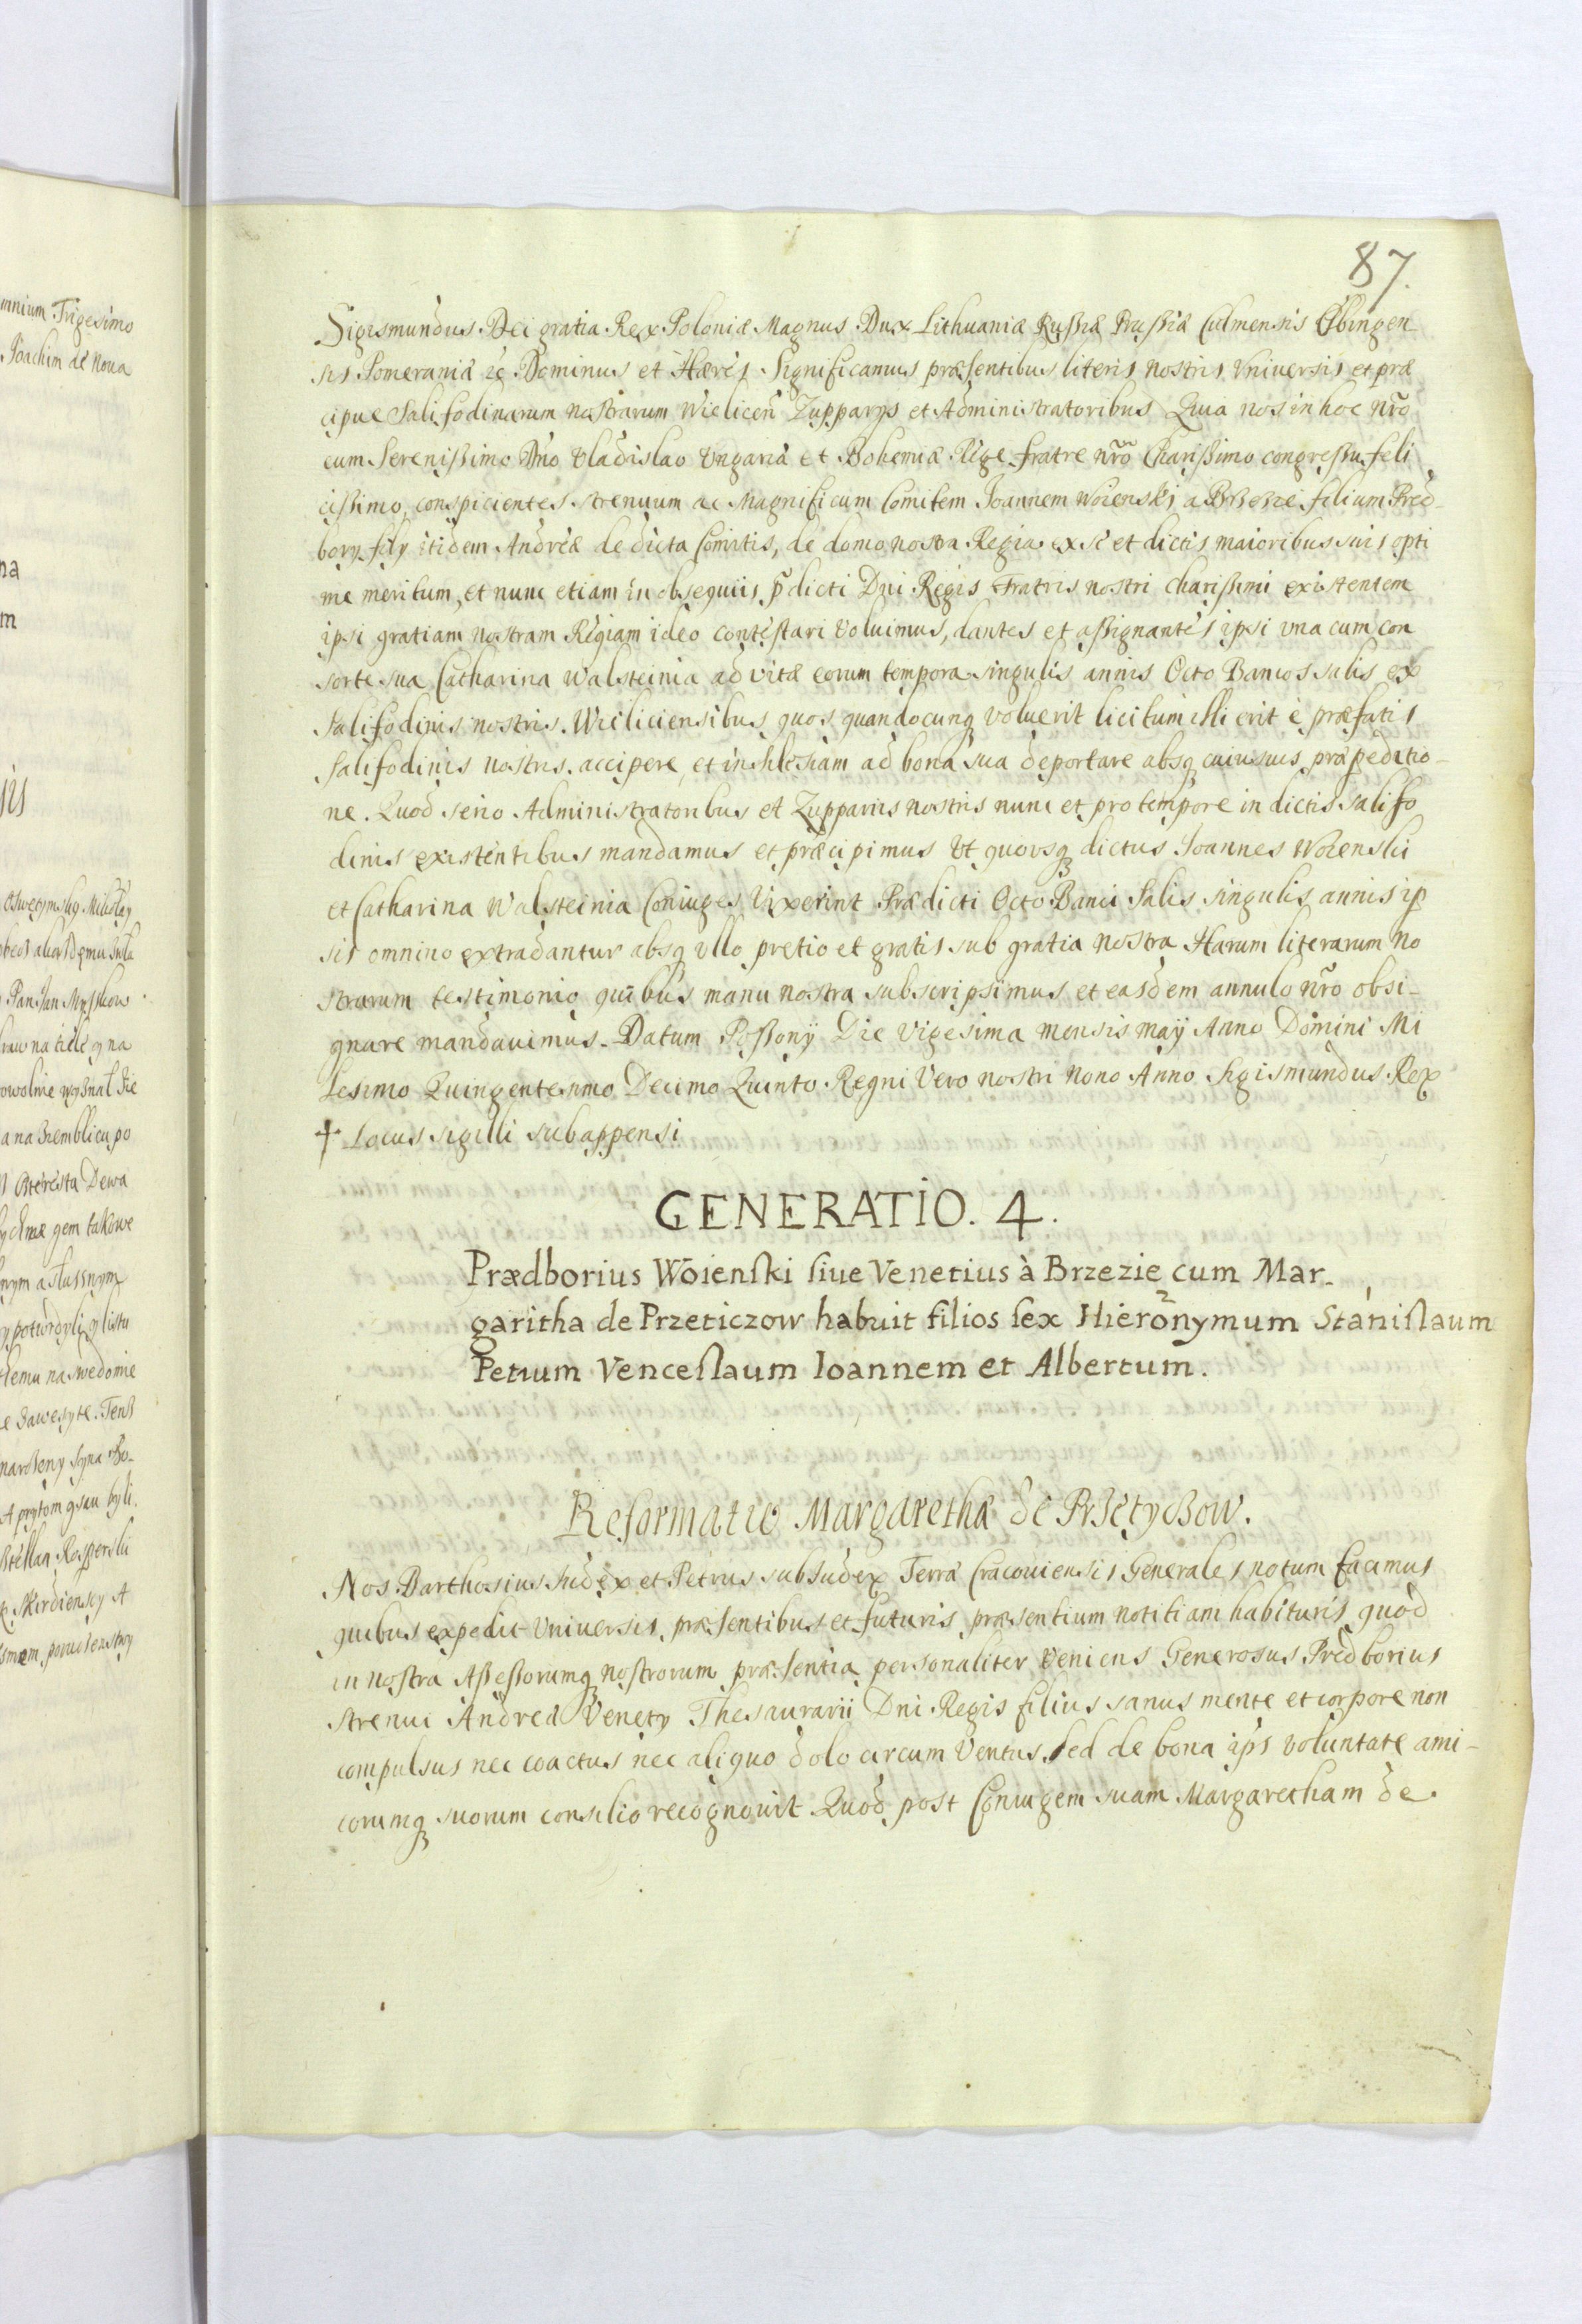 87.
Sigismundus Dei gratia Rex Poloniæ Magnus Dux Lithuaniæ Russiæ Prussiæ Culmensis Elbingen
sis Pomeraniæ ꝛc Dominus et Hæres Significamus præsentibus literis nostris Vniversis et præ
cipue Salifodinarum nostrarum Wielicen̄ Zupparys et Administratoribus Quia nos in hoc nr̄o
cum Serenissimo Dn̄o Vladislao Vngariæ et Bohemiæ Rege fratre nr̄o Charissimo congressu feli
cissimo, conspicientes strenuum ac Magnificum Comitem Joannem Woienski a Brzezie filium Pred-
bory fily itidem Andreæ de dicta Comitis, de domo nostra Regia ex se et dictis maioribus suis opti
me meritum, et nunc etiam in obsequiis p̄dicti Dn̄i Regis Fratris nostri charissimi existentem
ipsi gratiam nostram Regiam ideo contestari voluimus, dantes et assignantes ipsi vna cum con
sorte sua Catharina Walsteinia ad vitæ eorum tempora singulis annis Octo Bancos salis ex
salifodinis nostris Wieliciensibus quos quandocunqȝ voluerit licitum illi erit è præfatis
salifodinis nostris accipere, et in Silesiam ad bona sua deportare absqȝ cuiusuis præpeditio-
ne. Quod serio Administratoribus et Zuppariis nostris nunc et pro tempore in dictis salifo
dinis existentibus mandamus et præcipimus Vt quousqȝ dictus Joannes Woienski
et Catharina Walsteinia Coniuges Vixerint Prædicti Octo Banci Salis singulis annis ip
sis omnino extradantur absqȝ vllo pretio et gratis sub gratia nostra Harum literarum no
strarum testimonio quibus manu nostra subscripsimus et easdem annulo nr̄o obsi-
gnare mandauimus. Datum Possonÿ Die Vigesima mensis maÿ Anno Domini Mi
lesimo Quingentesimo Decimo Quinto Regni Vero nostri nono Anno Sigismundus Rex
† Locus sigilli subappensi
GENERATIO. 4.
Prædborius Woienſki ſiue Venetius à Brzezie cum Mar-
garitha de Przeticzow habuit filios ſex Hieronymum 2 Staniſlaum 1
Petrum Venceſlaum Ioannem et Albertum.
Reformatio Margarethæ de Prȝetyczow.
Nos Barthosius Judex et Petrus subJudex Terræ Cracouiensis Generales notum facimus
quibus expedit Vniversis præsentibus et futuris præsentium notitiam habituris quod
in nostra Assessorumqȝ nostrorum præsentia personaliter Veniens Generosus Predborius
strenui Andreæ Venety Thesaurarii Dn̄i Regis filius sanus mente et corpore non
compulsus nec coactus nec aliquo dolo circum Ventus, sed de bona ip̄s voluntate ami-
corumqȝ suorum consilio recognouit Quod post Coniugem suam Margaretham de